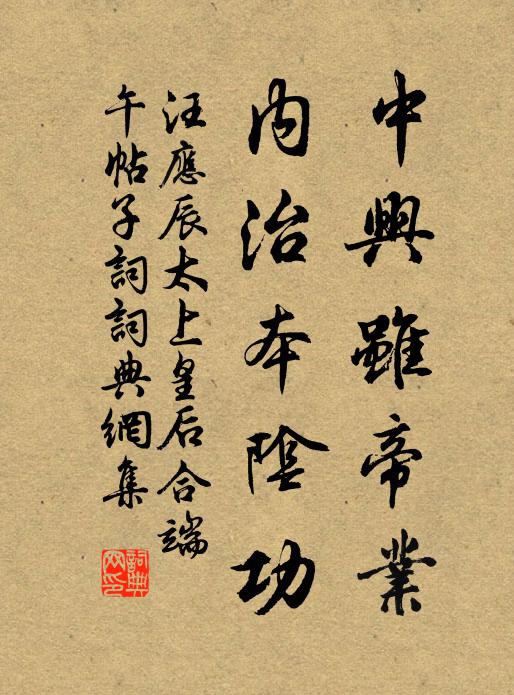 中興雖帝業
内治本陰功
汪應辰太上皇后合端
午帖子詞詞典網集
詞典網印